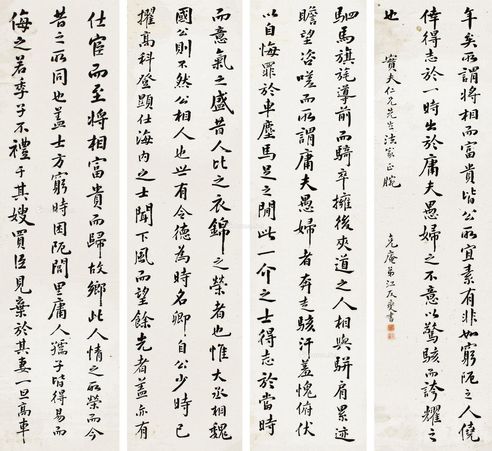 仕宦而至將相富貴而歸故鄉此人情之所榮而今
昔之所同也蓋士方窮時困阨閭里庸人孺子皆得易而
侮之若季子不禮于其嫂買臣見棄於其妻一旦高車
駟馬旗旄導前而騎卒擁後夾道之人相與駢肩累迹
瞻望咨嗟而所謂庸夫愚婦者奔走駭汗羞愧俯伏
以自悔罪於車塵馬足之閒此一介之士得志於當時
而意氣之盛昔人比之衣錦之榮者也惟大丞相魏
國公則不然公相人也世有令德為時名卿自公少時已
擢高科登顯仕海內之士聞下風而望餘光者蓋亦有
年矣所謂將相而富貴皆公所宜素有非如窮阨之人僥
倖得志於一時出於庸夫愚婦之不意以驚駭而誇耀之
也
寶夫仁兄先生法家正腕
克庵弟江友燮書